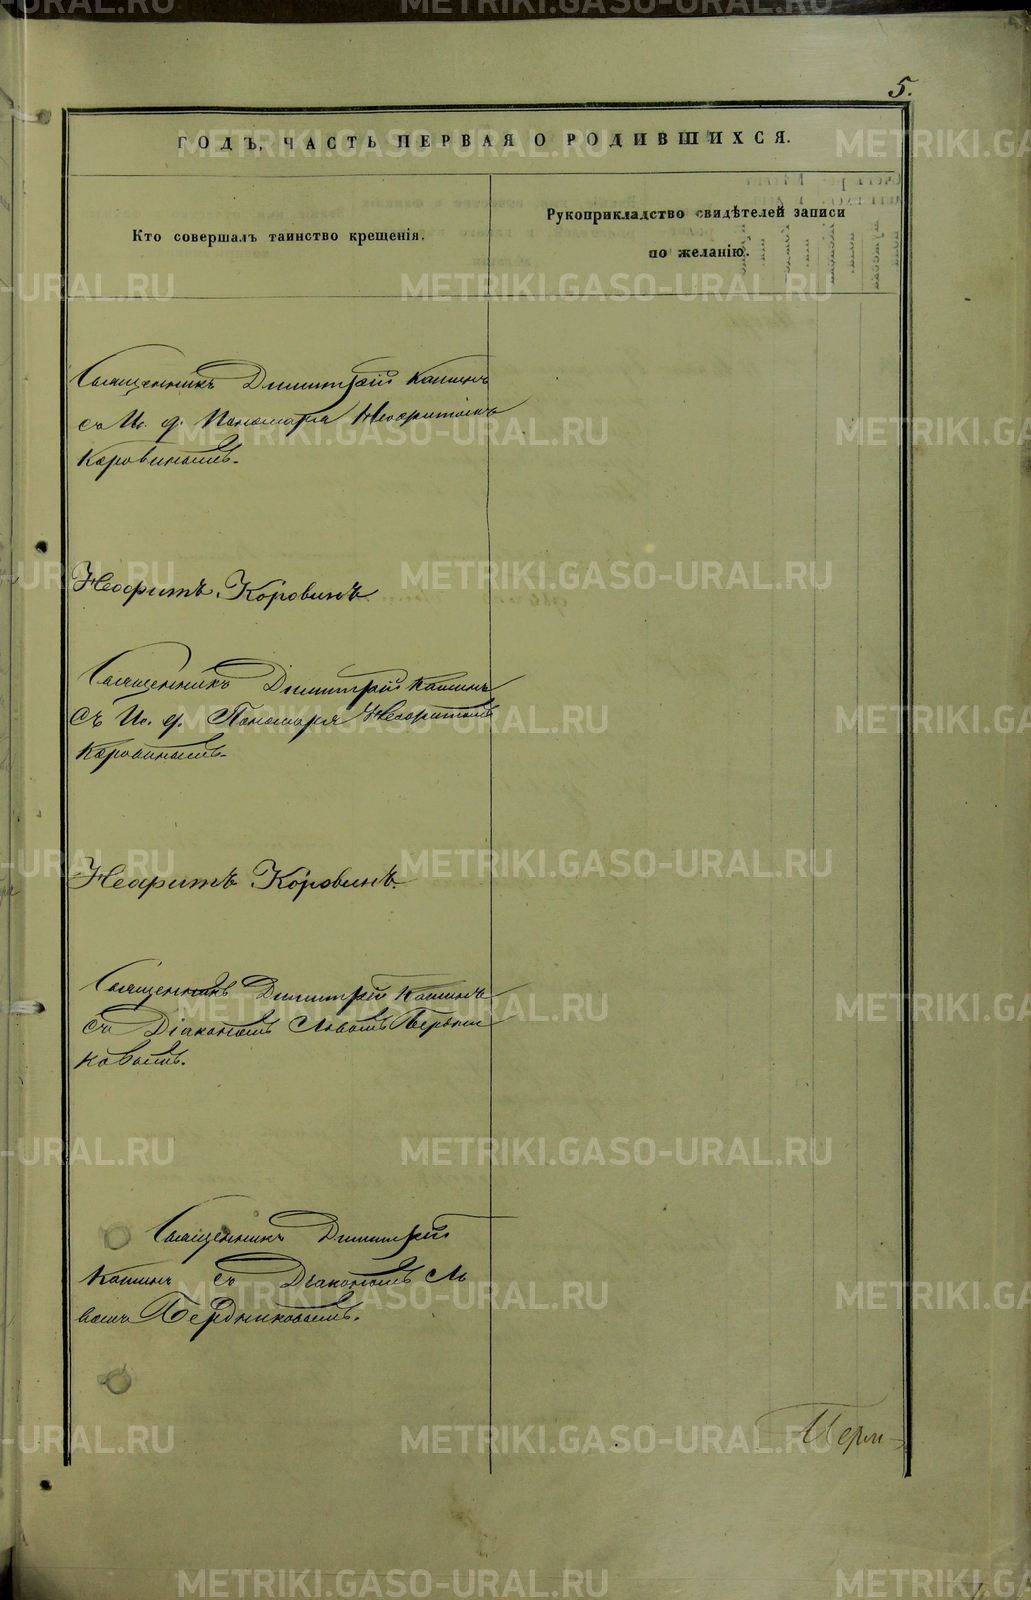 5.
ГОДЪ, ЧАСТЬ ПЕРВАЯ О РОДИВШИХСЯ.
Кто совершалъ таинство крещенія.
Рукоприкладство свидѣтелей записи
по желанію.
Священникъ Димитрій Кашинъ
съ И. д. Пономаря Неофитомъ
Коровинымъ.
Неофитъ Коровинъ
Священникъ Димитрій Кашинъ
Съ И. д. Пономаря Неофитомъ
Коровинымъ.
Неофитъ Коровинъ.
Священникъ Димитрій Кашинъ
съ Діакономъ Львомъ Бердни
ковымъ.
Священникъ Димитрій
Кашинъ съ Діакономъ Ль
вомъ Бердниковымъ.
Перм-
METRIKI.GASO-URAL.RU